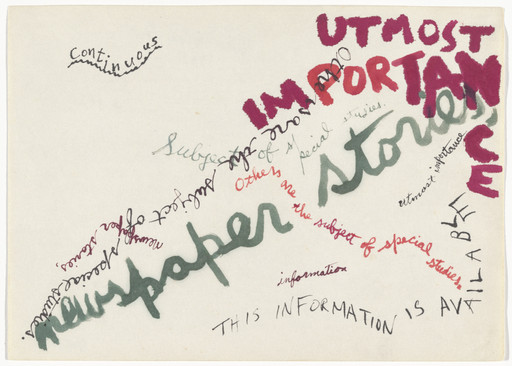 Continuous
UTMOST
IMPORTANCE
Others are the subject of special studies.
Subjects of special studies.
newspaper stories,
utmost importance
Others are the subject of special studies.
newspaper stories,
information
THIS INFORMATION IS AVAILABLE